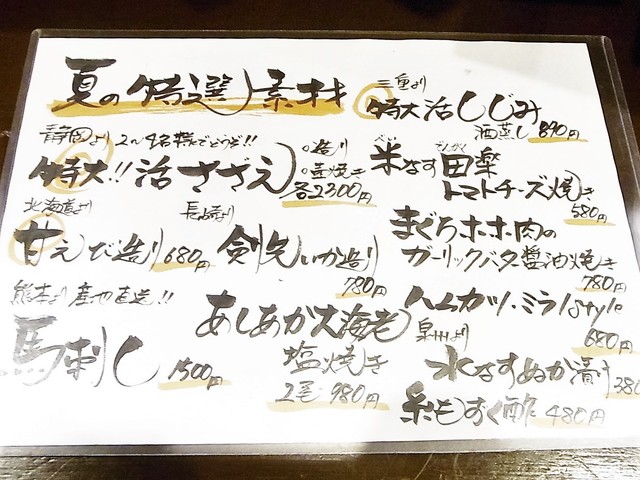 夏の特選素材
静岡より 2〜4名様でどうぞ!!
特大!!活さざえ
○造り
○壷焼き
各2300円
北海道より
甘えび造り 680円
長崎より
剣先いか造り
780円
熊本より産地直送!!
馬刺し 1500円
あしあか大海老
塩焼き
2尾 980円
三重より
特大活しじみ
酒蒸し 890円
べい でんがく
米なす田楽
トマトチーズ焼き
580円
まぐろホホ肉の
ガーリックバター醤油焼き
780円
ハムカツ・ミラノstyle
680円
泉州より
水なすぬか漬け 380
糸もずく酢 480円